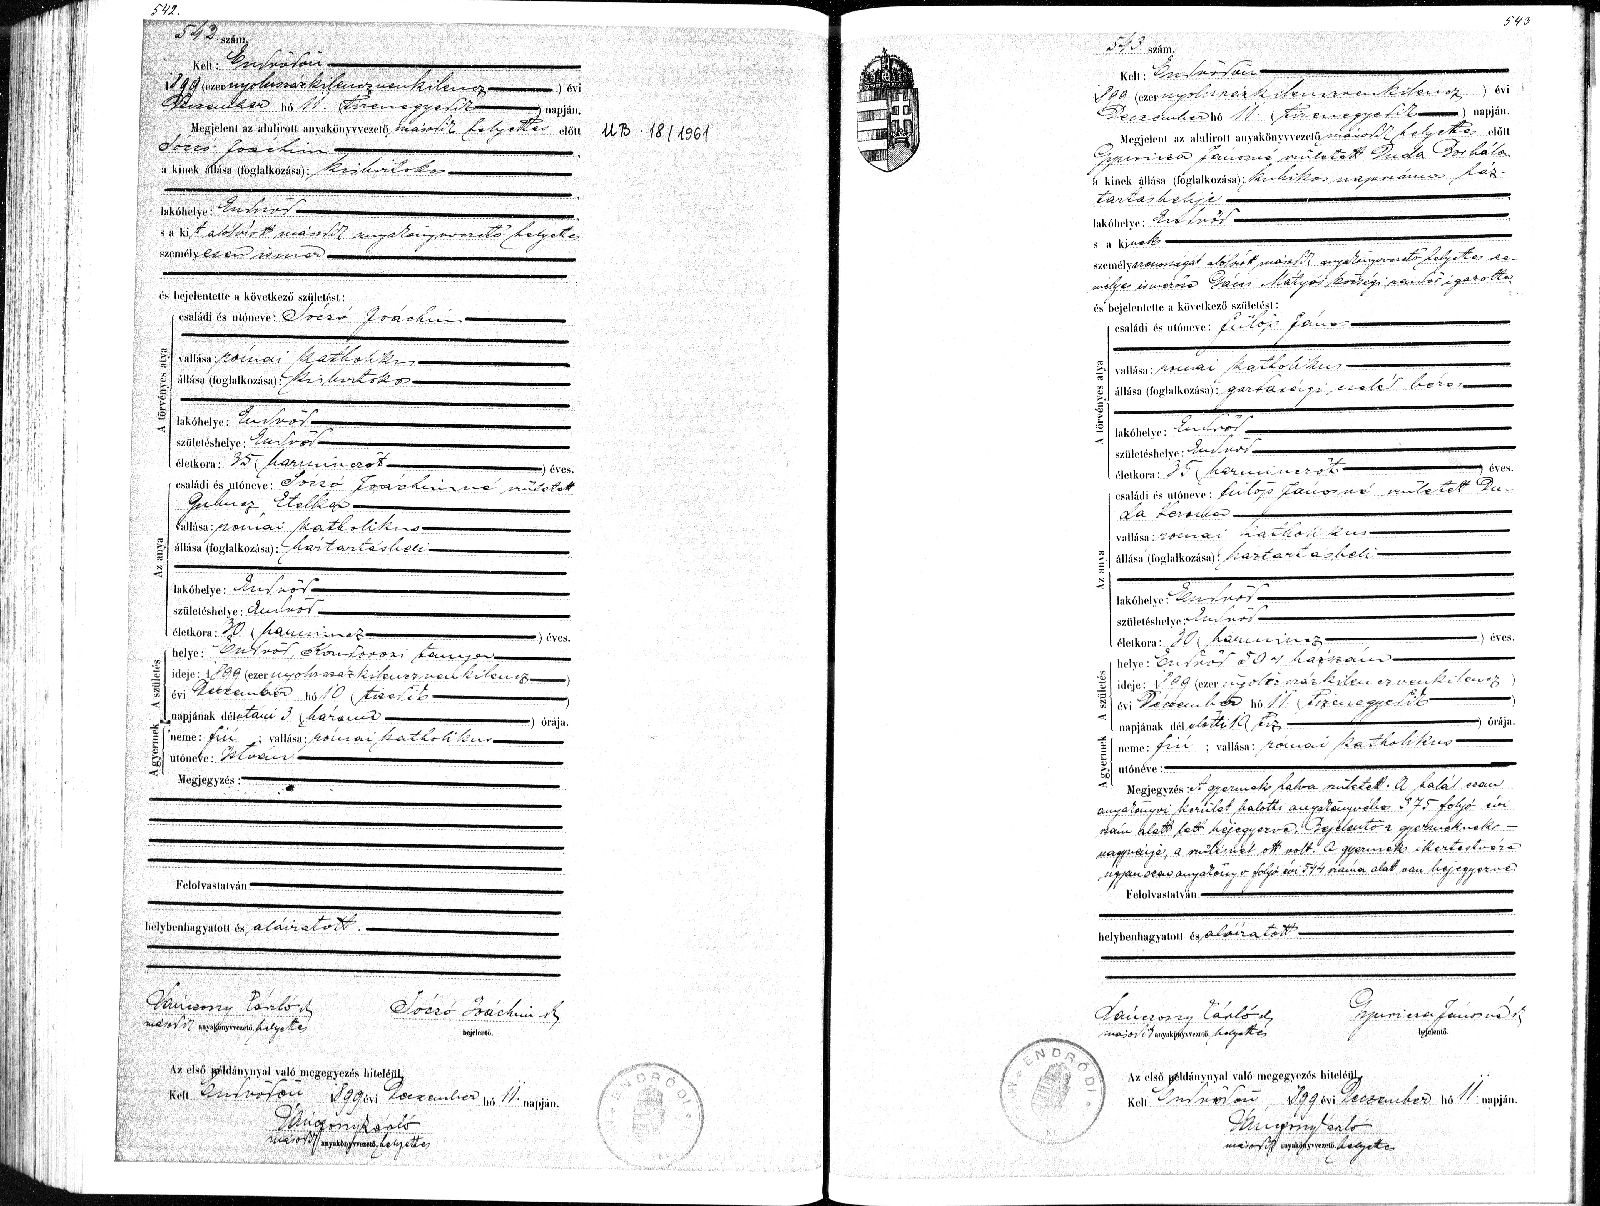 542.
542 szám.
Kelt: Endrődön
1899 (ezernyolcszázkilenczvenkilencz) évi
Deczember hó 11. (tizenegyedik) napján.
Megjelent az alulirott anyakönyvvezető második helyettes előtt
Sóczó Joachim
a kinek állása (foglalkozása): kisbirtokos
lakóhelye: Endrőd
s a kit alulirott második anyakönyvvezető helyettes
személyesen ismer
és bejelentette a következő születést:
A törvényes atya
családi és utóneve: Sóczó Joachim
vallása: római katholikus
állása (foglalkozása): kisbirtokos
lakóhelye: Endrőd
születéshelye: Endrőd
életkora: 35 (harminczöt) éves.
Az anya
családi és utóneve: Sóczó Joachimné született
Etelka
vallása: római katholikus
állása (foglalkozása): háztartásbeli
lakóhelye: Endrőd
születéshelye: Endrőd
életkora: 30 (harmincz) éves.
A születés
helye: Endrőd, Kondorosi tanya
ideje: 1899 (ezernyolcszázkilenczvenkilencz)
évi Deczember hó 10 (tizedik)
napjának délutáni 3 (három) órája.
A gyermek
neme: fiú; vallása: római katholikus
utóneve: István
Megjegyzés:
Felolvastatván
helybenhagyatott és aláiratott.
Károly
Sóczó Joáchim
második anyakönyvvezető helyettes
bejelentő.
Az első példánynyal való megegyezés hiteléül
Kelt Endrődön 1899 évi Deczember hó 11. napján.
Károly
második anyakönyvvezető helyettes
UB. 18/1961
ENDRŐDI
543
543 szám.
Kelt: Endrődön
1899 (ezernyolcszázkilenczvenkilencz) évi
Deczember hó 11 (tizenegyedik) napján.
Megjelent az alulirott anyakönyvvezető második helyettes előtt
Gyuricza Jánosné született Duda Borbála
a kinek állása (foglalkozása): kubikos napszámos ház-
tartásbelije
lakóhelye: Endrőd
s a kinek
személyazonosságát alulirott második anyakönyvvezető helyettes sze-
mélyes ismerőse Mátyás községi igazolta
és bejelentette a következő születést:
A törvényes atya
családi és utóneve: Fülöp János
vallása: római katholikus
állása (foglalkozása): gazdasági cseléd béres
lakóhelye: Endrőd
születéshelye: Endrőd
életkora: 35 (harminczöt) éves.
Az anya
családi és utóneve: Fülöp Jánosné született Du-
da
vallása: római katholikus
állása (foglalkozása): háztartásbeli
lakóhelye: Endrőd
születéshelye: Endrőd
életkora: 30 (harmincz) éves.
A születés
helye: Endrőd házszám
ideje: 1899 (ezernyolcszázkilenczvenkilencz)
évi Deczember hó 11. (tizenegyedik)
napjának délelőtti 10 (tiz) órája.
A gyermek
neme: fiú; vallása: római katholikus
utóneve:
Megjegyzés: A gyermek halva született. A halál ezen
anyakönyvi kerület halotti anyakönyvébe 375 folyó évi
szám alatt lett bejegyezve. Bejelentő a gyermeknek
nagynénje, a szülésnél ott volt. A gyermek ikertestvére
ugyanezen anyakönyv folyó évi 544 száma alatt van bejegyezve.
Felolvastatván
helybenhagyatott és aláiratott
Károly
Gyuricza Jánosné
második anyakönyvvezető helyettes
bejelentő.
Az első példánynyal való megegyezés hiteléül
Kelt Endrődön 1899 évi Deczember hó 11. napján.
Károly
második anyakönyvvezető helyettes
ENDRŐDI